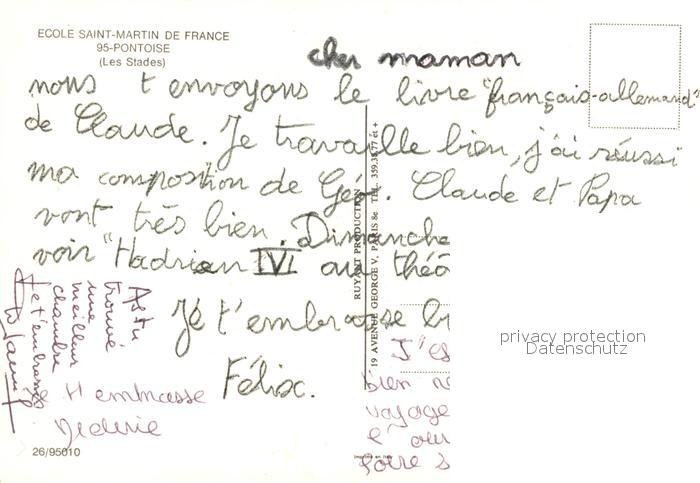 ECOLE SAINT-MARTIN DE FRANCE
95-PONTOISE
(Les Stades)
cher maman
nous t envoyons le livre "français-allemand"
de Claude. Je travaille bien, j'ai réussi
ma compostion de Géo. Claude et Papa
vont très bien. Dimanche
voir "Hadrien IV" au théâ
Je t'embrasse b
Félix.
As tu
trouvé
une
meilleur
chambre
Je t'embrasse
t'embrasse
RUYANT PRODUCTION
19 AVENUE GEORGE V, PARIS 8e TÉL. 359.35.77 et +
J'es
bien
voyage
faire s
26/95010
Imprimé en
privacy protection
Datenschutz